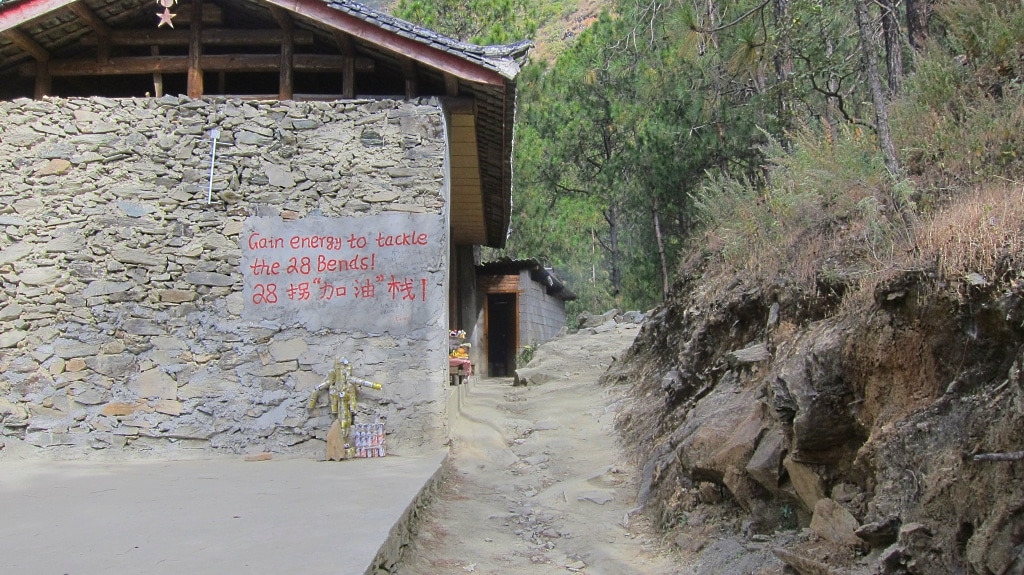 Gain energy to tackle
the 28 Bends!
28 拐“加油”栈!